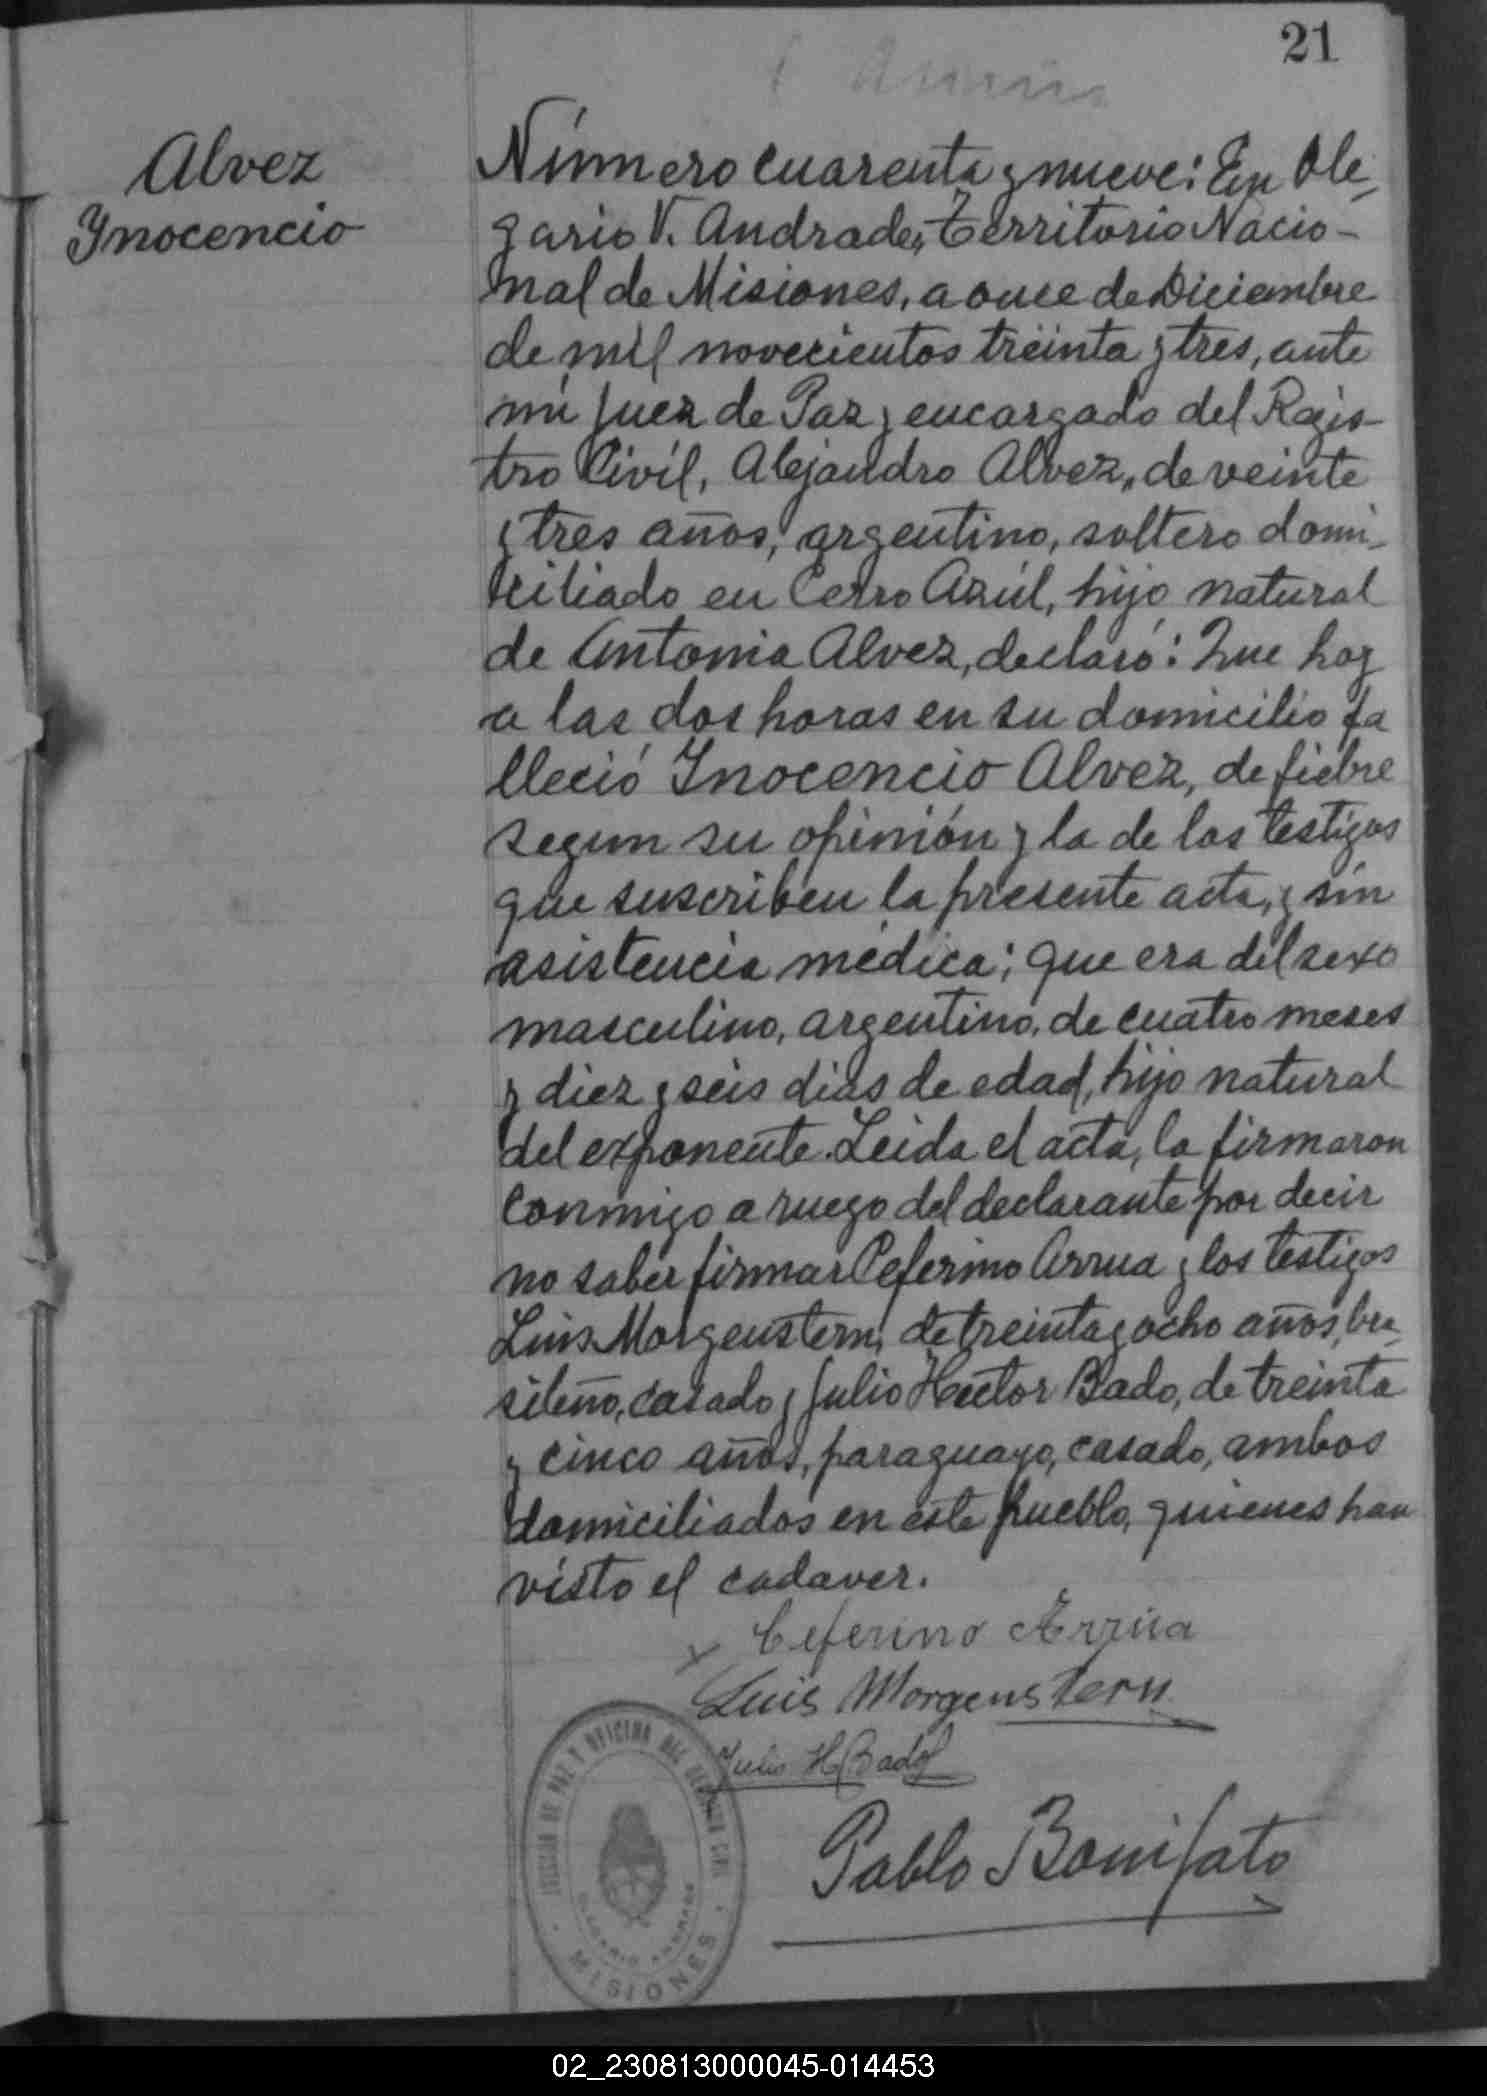 21
Alvez
Ynocencio
Número cuarenta y nueve: En Ole-
gario V. Andrade, Territorio Nacio-
nal de Misiones, a once de Diciembre
de mil novecientos treinta y tres, ante
mi Juez de Paz y encargado del Regis-
tro Civil, Alejandro Alvez, de veinte
y tres años, argentino, soltero domi-
ciliado en Cerro Azúl, hijo natural
de Antonia Alvez, declaró: Que hoy
a las dos horas en su domicilio fa
lleció Ynocencio Alvez, de fiebre
segun su opinión y la de los testigos
que suscriben la presente acta, y sin
asistencia médica; que era del sexo
masculino, argentino, de cuatro meses
y diez y seis dias de edad, hijo natural
del exponente. Leida el acta, la firmaron
conmigo a ruego del declarante por decir
no saber firmar Ceferino Arrua y los testigos
Luis Morgenstern, de treinta y ocho años, bra-
sileño, casado y Julio Hector Bado, de treinta
y cinco años, paraguayo, casado, ambos
domiciliados en este pueblo, quienes han
visto el cadaver.
Ceferino Arrúa
Luis Morgenstern
Julio H. Bado
JUZGADO DE PAZ Y OFICINA DEL REGISTRO CIVIL
OLEGARIO ANDRADE
MISIONES
Pablo Bonifato
02_230813000045-014453